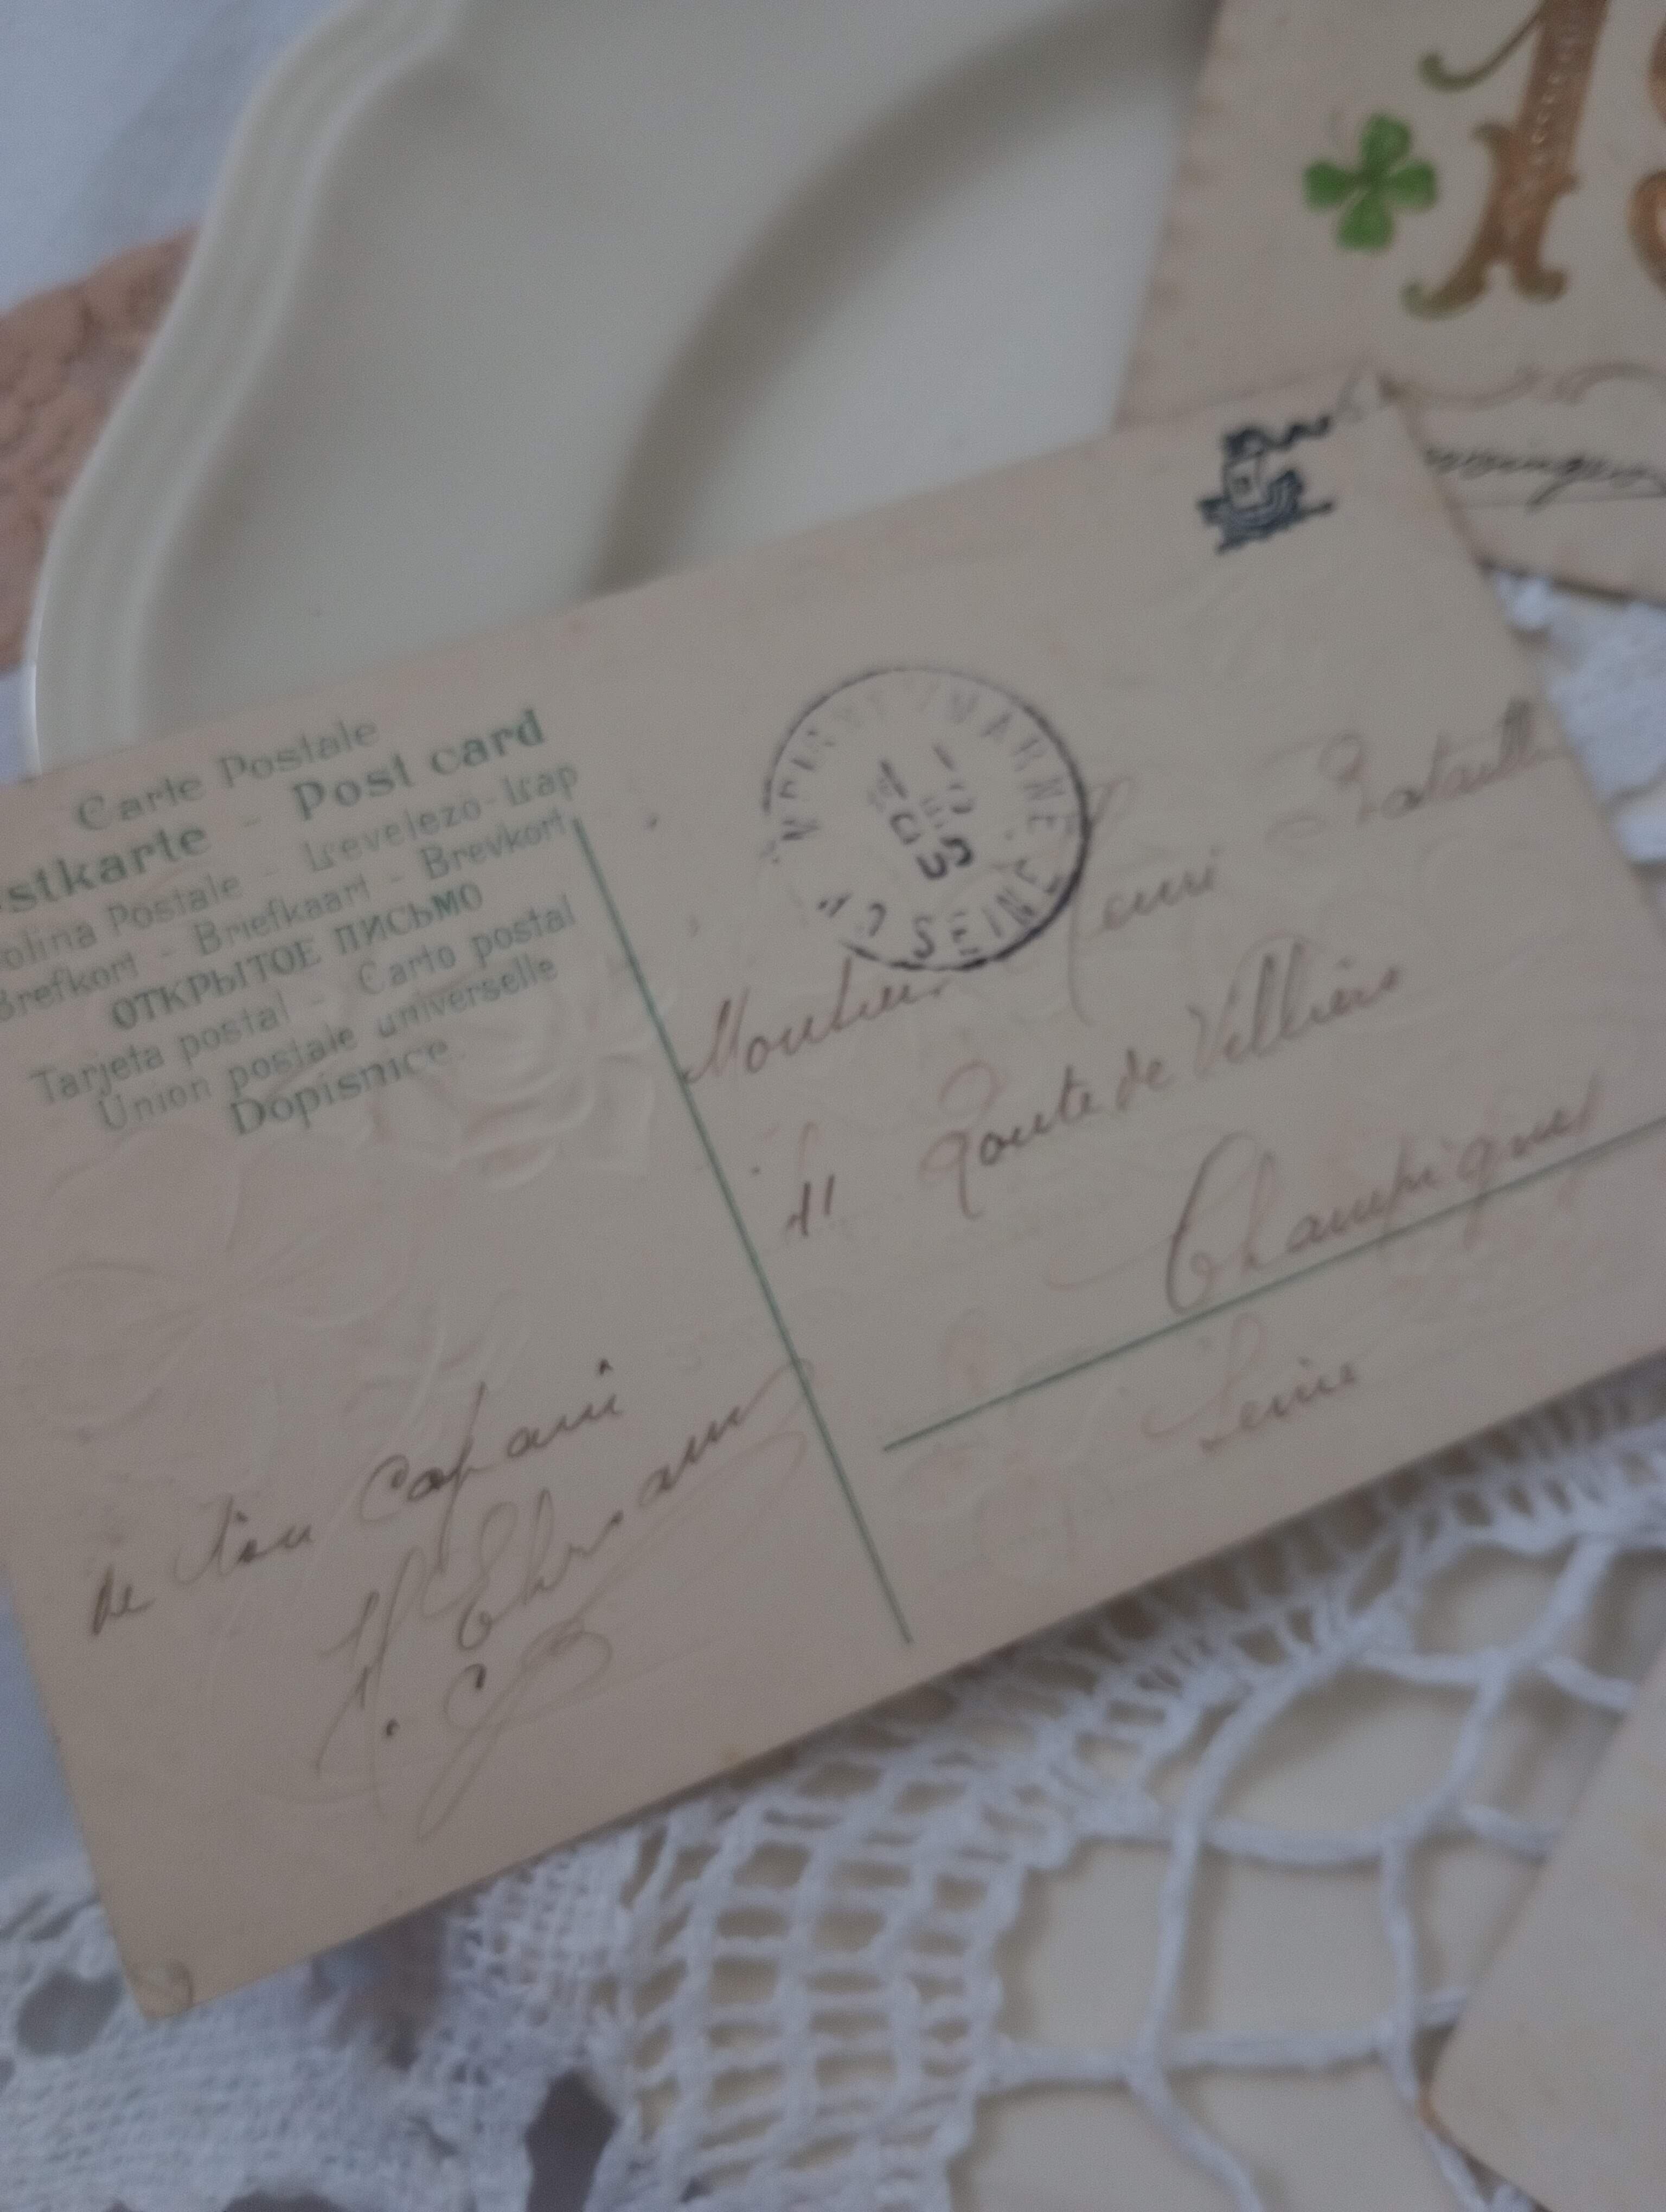 Carte Postale
stkarte - Post card
olina Postale - Levelezö-Lap
Brefkort - Briefkaart - Brevkort
ОТКРЫТОЕ ПИСЬМО
Tarjeta postal - Carto postal
Union postale universelle
Dopisnice
MARNE
SEINE
Monsieur Henri Bataill
11 Route de Villiers
Champigny
Seine
de ton copain
H Ehrsam
19